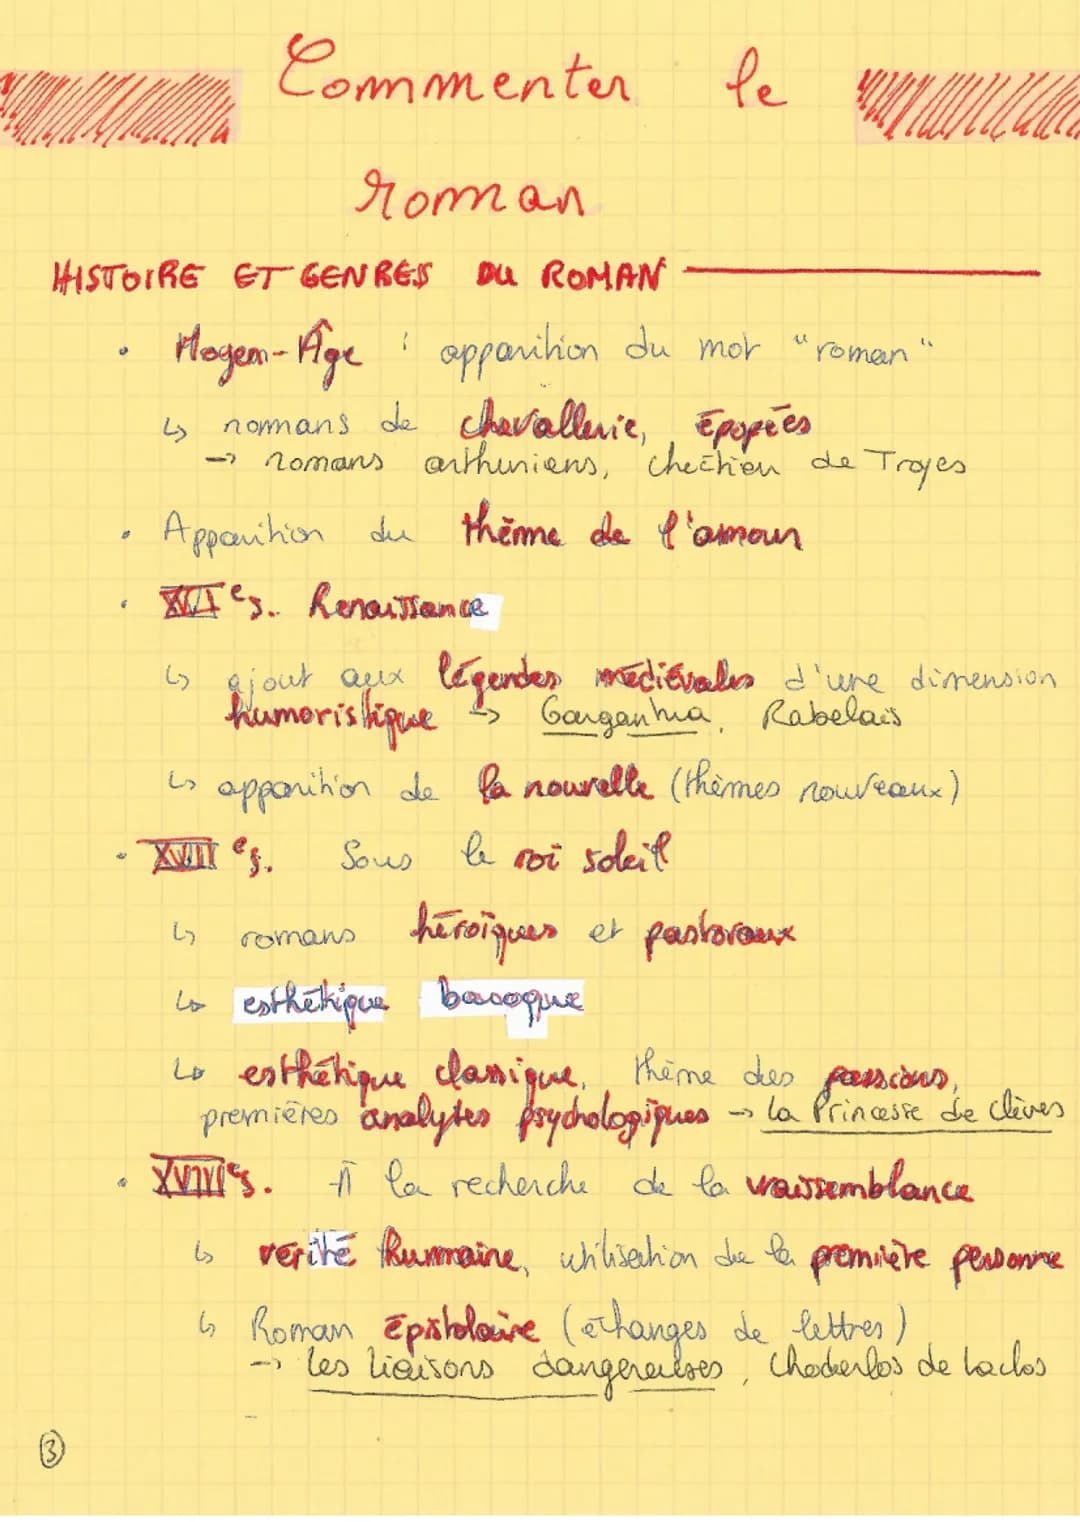 Commenter le
roman
HISTOIRE ET GENRES DU ROMAN
• Moyen-Âge : apparition du mot "roman"
↳ romans de chevallerie, épopées
→ romans arthuriens, Chrétien de Troyes
• Apparition du thème de l'amour
• XVIe s. Renaissance
↳ ajout aux légendes médiévales d'une dimension
humoristique → Gargantua, Rabelais
↳ apparition de la nouvelle (thèmes nouveaux)
• XVIIe s. Sous le roi soleil
↳ romans héroïques et pastoraux
↳ esthétique baroque
↳ esthétique classique, thème des passions,
premières analyses psychologiques → La Princesse de Clèves
• XVIIIe s. À la recherche de la vraissemblance
↳ vérité humaine, utilisation de la première personne
↳ Roman épistolaire (échanges de lettres)
→ Les liaisons dangereuses, Choderlos de Laclos
3